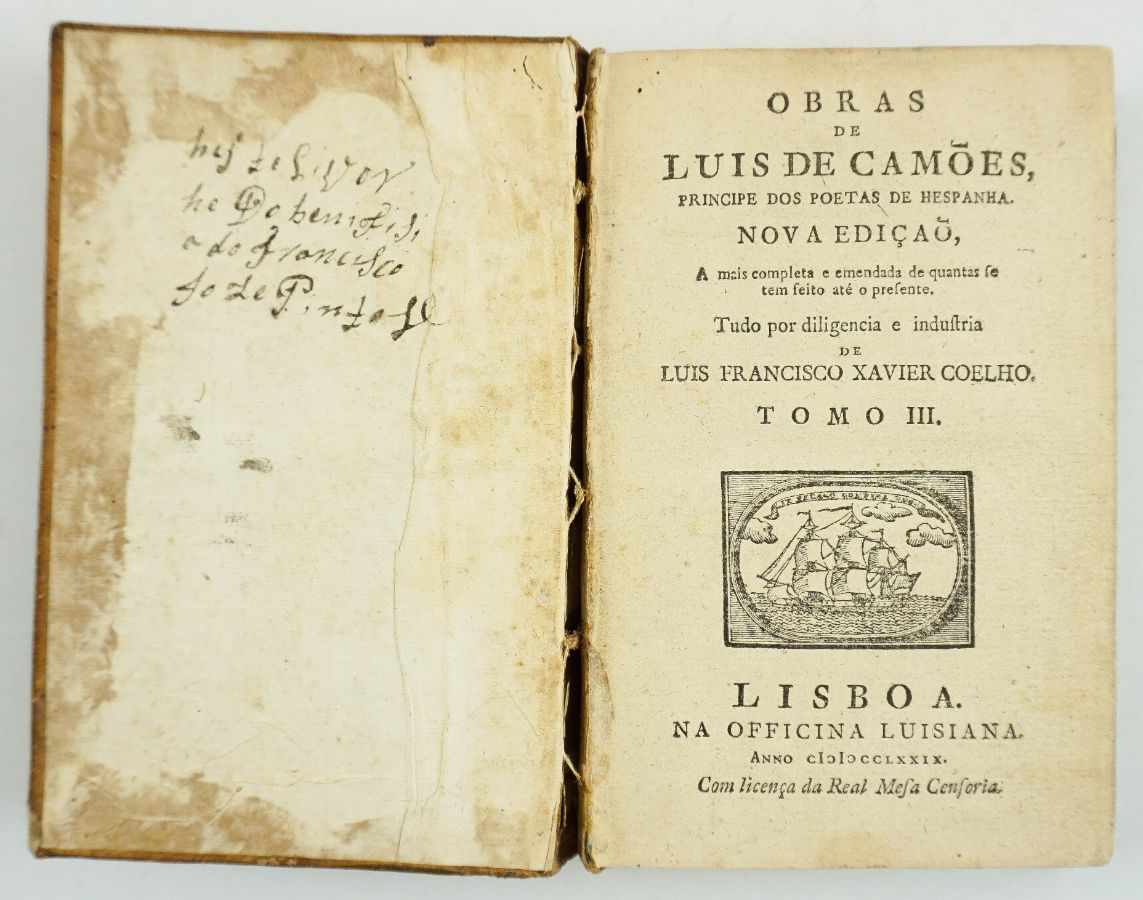 hes te Livor
he Do benifisi
o do francisco
Joze Pinto
OBRAS
DE
LUIS DE CAMÕES,
PRINCIPE DOS POETAS DE HESPANHA.
NOVA EDIÇAÕ,
A mais completa e emendada de quantas ſe
tem feito até o preſente.
Tudo por diligencia e induſtria
DE
LUIS FRANCISCO XAVIER COELHO.
TOMO III.
LISBOA.
NA OFFICINA LUISIANA.
ANNO CIↃIↃCCLXXIX.
Com licença da Real Meſa Cenſoria.